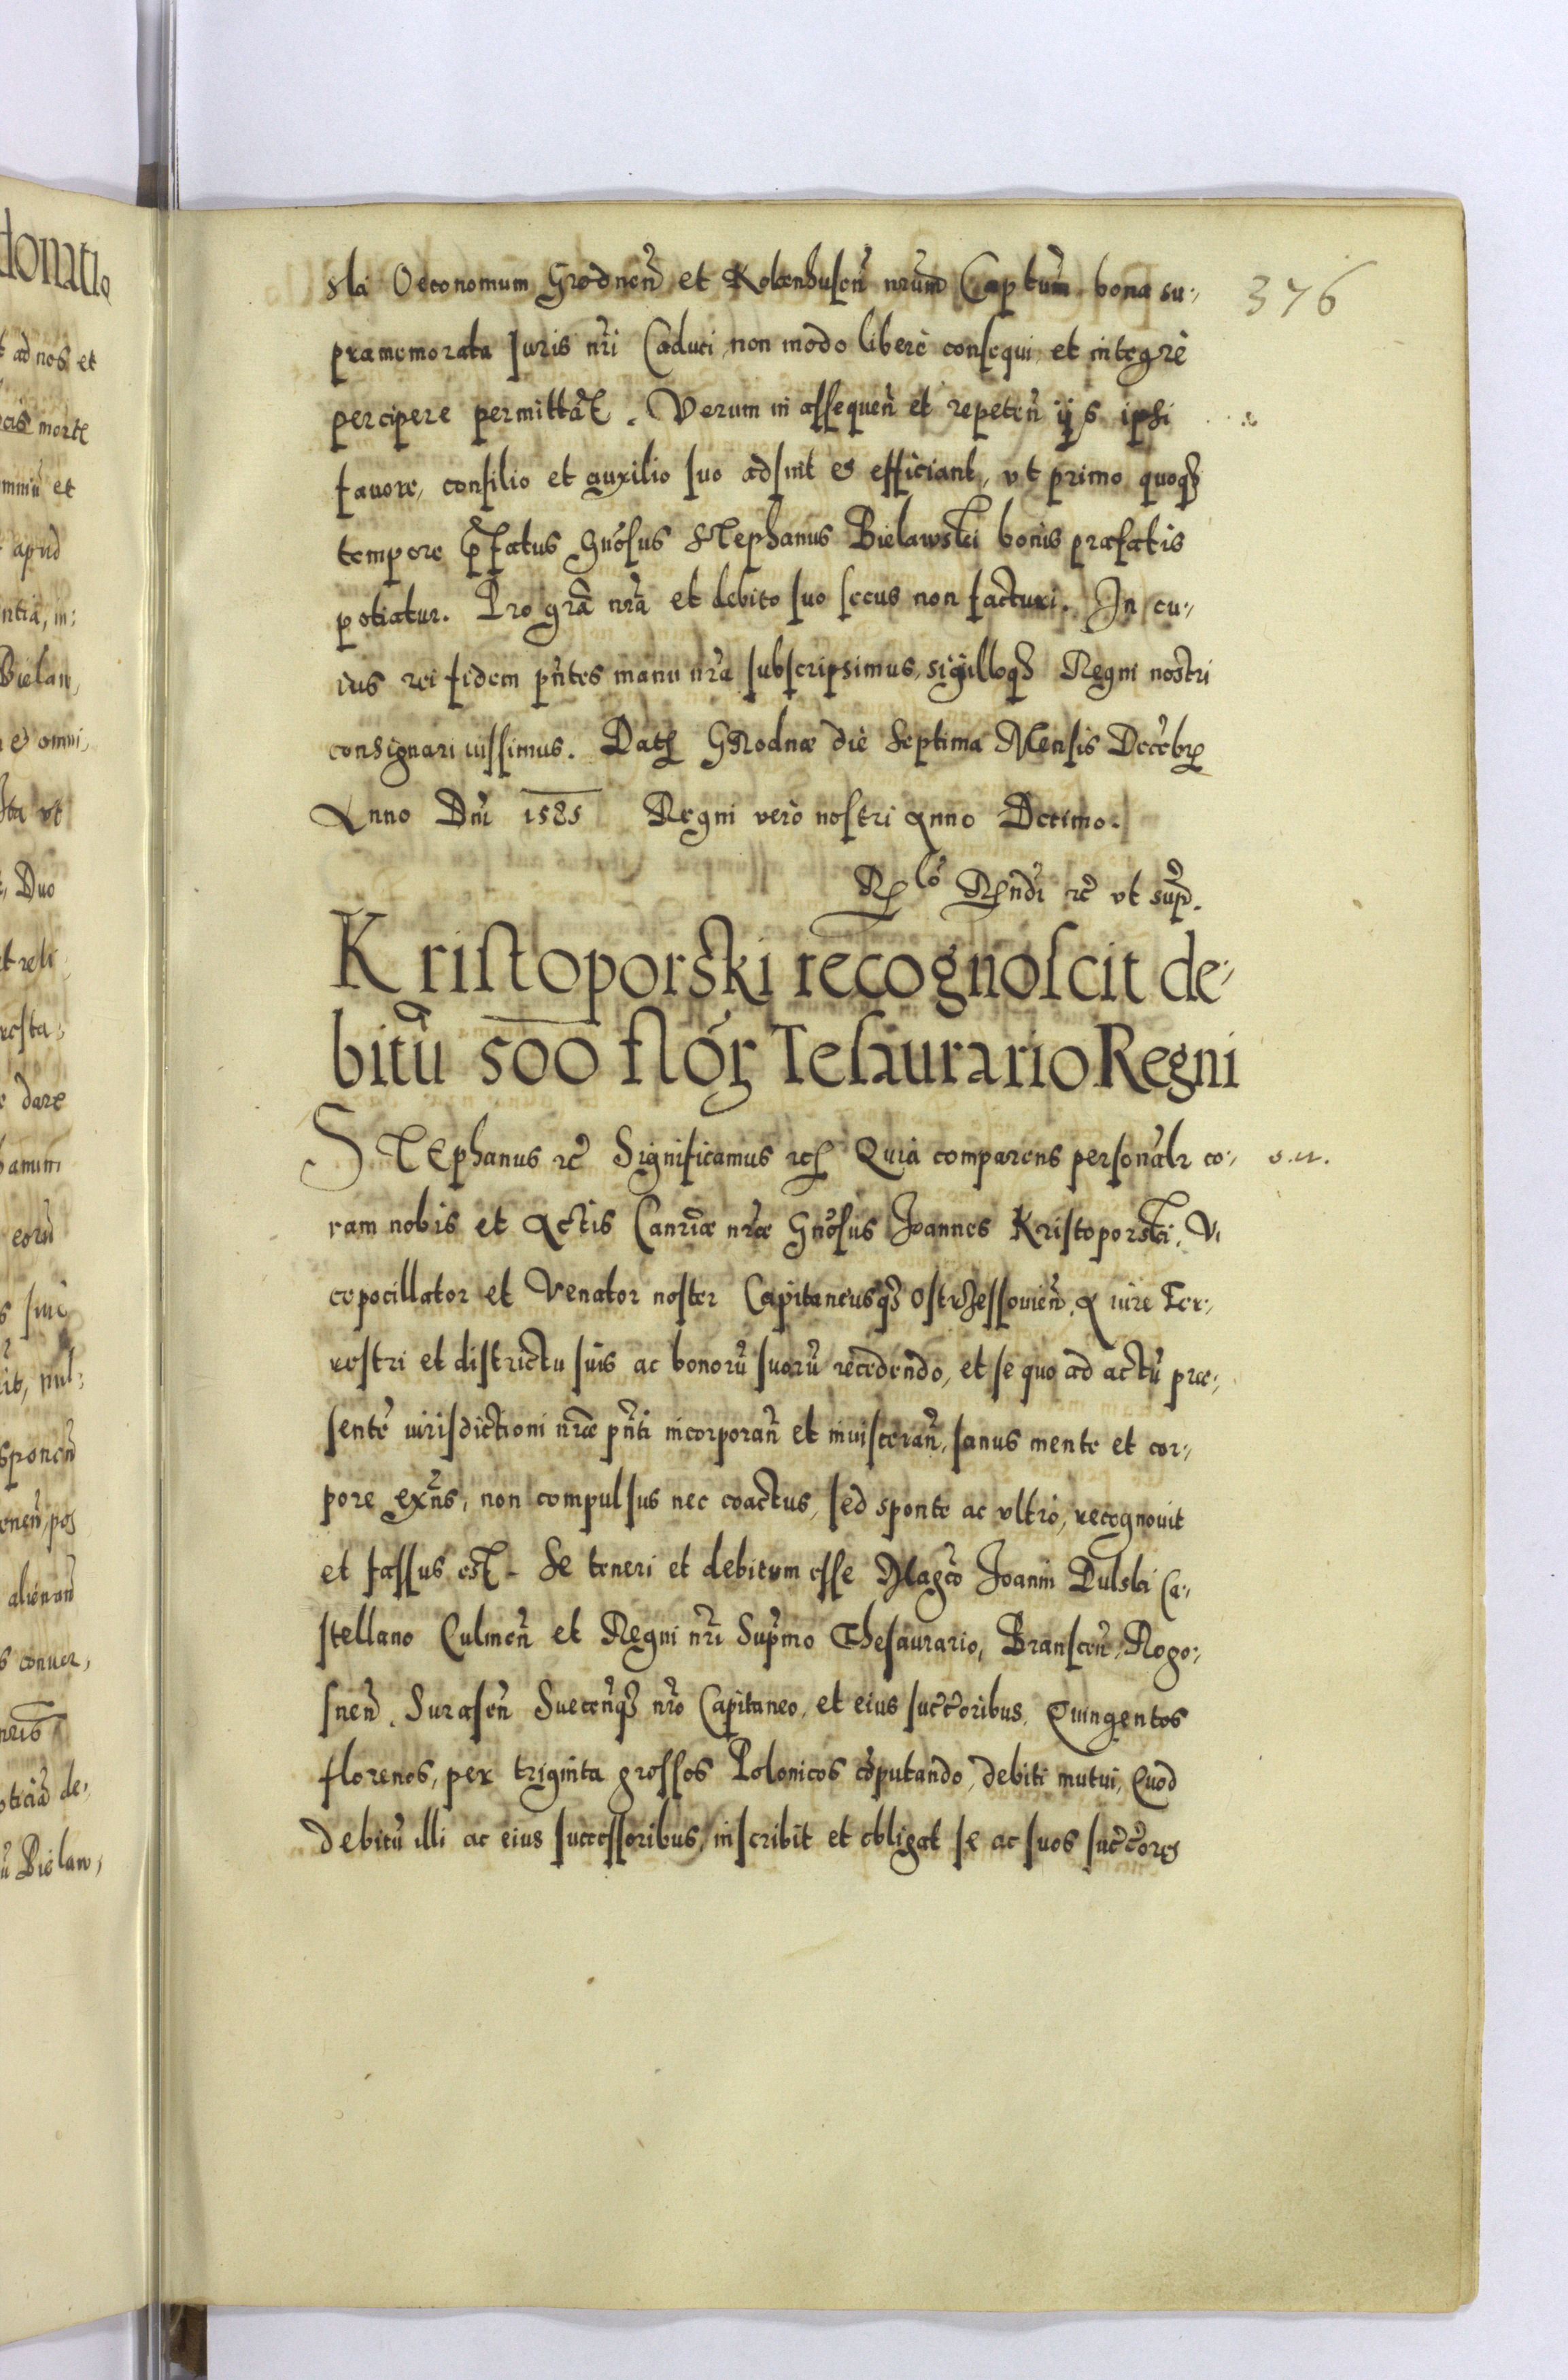 376
ski Oeconomum Grodnen̄ et Kokenhusen̄ nr̄um Captum̄ bona su-
pramemorata Iuris nr̄i Caduci, non modo liberè consequi et integrè
percipere permittāt. Verum in assequen̄ et repeten̄ ijs ipsi
fauore, consilio et auxilio suo adsint & efficiant, vt primo quoq₃
tempore p̄fatus Gn̄osus Stephanus Bielawski bonis præfatis
potiatur. Pro gr̄a nr̄a et debito suo secus non facturi. In cu-
ius rei fidem pn̄tes manu nr̄a subscripsimus, sigilloq₃ Regni nostri
consignari iussimus. Datꝭ GRodnæ die Septima Mensis Decēbrꝭ
Anno Dn̄i 1585 Regni verò nostri anno Decimo.
Rꝭlō Rꝭndi rc̄ vt sup̄.
Kristoporski recognoscit de-
bitū 500 flor̄ Tesaurario Regni
STEphanus rc̄ Significamus rcꝭ Quia comparens personālr co- s.n.
ram nobis et Actis Canr̄iæ nr̄æ Gn̄osus Joannes Kristoporski, Vi
cepocillator et Venator noster Capitaneusq₃ Ostrzessouien̄, a iure Ter-
restri et districtu suis ac bonorū suorū recedendo, et se quo ad actū præ-
sentē iurisdictioni nr̄æ pn̄ti incorporan̄ et inuisceran̄, sanus mente et cor-
pore exn̄s, non compulsus nec coactus, sed sponte ac vltrò, recognouit
et fassus est. Se teneri et debitum esse Magc̄o Joanni Dulski Ca-
stellano Culmen̄ et Regni nr̄i Sup̄mo Thesaurario, Branscen̄, Rogo-
snen̄, Surasen̄ Suecen̄q₃ nr̄o Capitaneo, et eius succ̄oribus, Quingentos
florenos, per triginta grossos Polonicos cōputando, debiti mutui, Quod
debitū illi ac eius successoribus, inscribit et obligat se ac suos succ̄ores